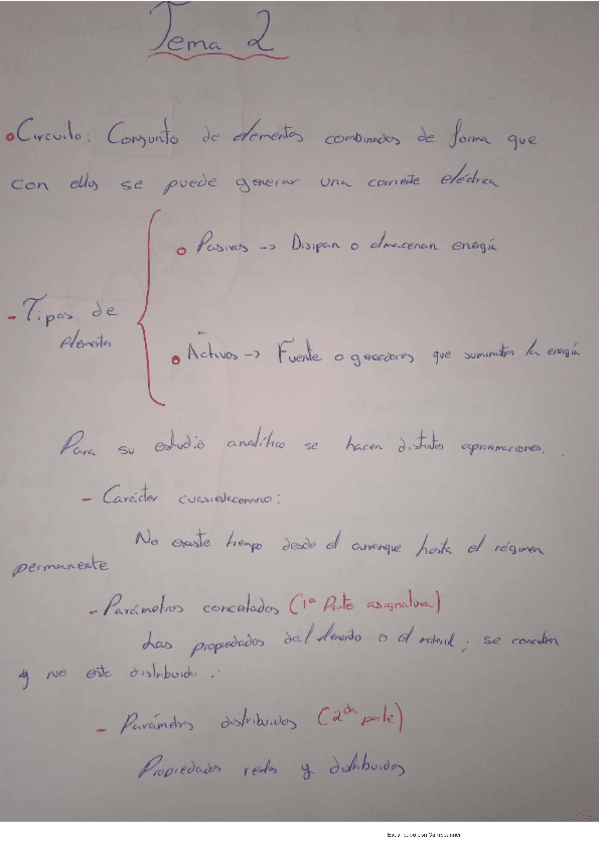 Tema 2
Circuito: Conjunto de elementos combinados de forma que
con ellos se puede generar una corriente eléctrica
Pasivos -> Disipan o almacenan energía
- Tipos de
elementos
Activos -> Fuente o generadores que suministran la energía
Para su estudio analítico se hacen distintas aproximaciones:
- Carácter cuasiestacionario:
No existe tiempo desde el arranque hasta el régimen
permanente
- Parámetros concentrados (1ª Parte asignatura)
Las propiedades del elemento o el material, se concentran
y no este distribuido.
- Parámetros distribuidos (2da parte)
Propiedades reales y distribuidos